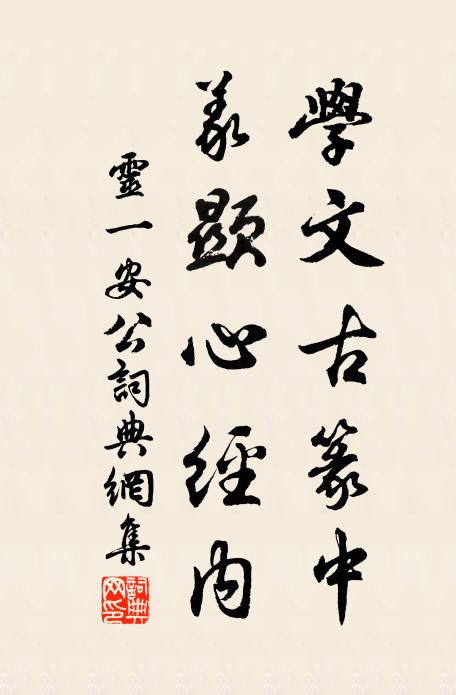 學文古篆中
義顯心經內
靈一安公詞典網集
詞典网印